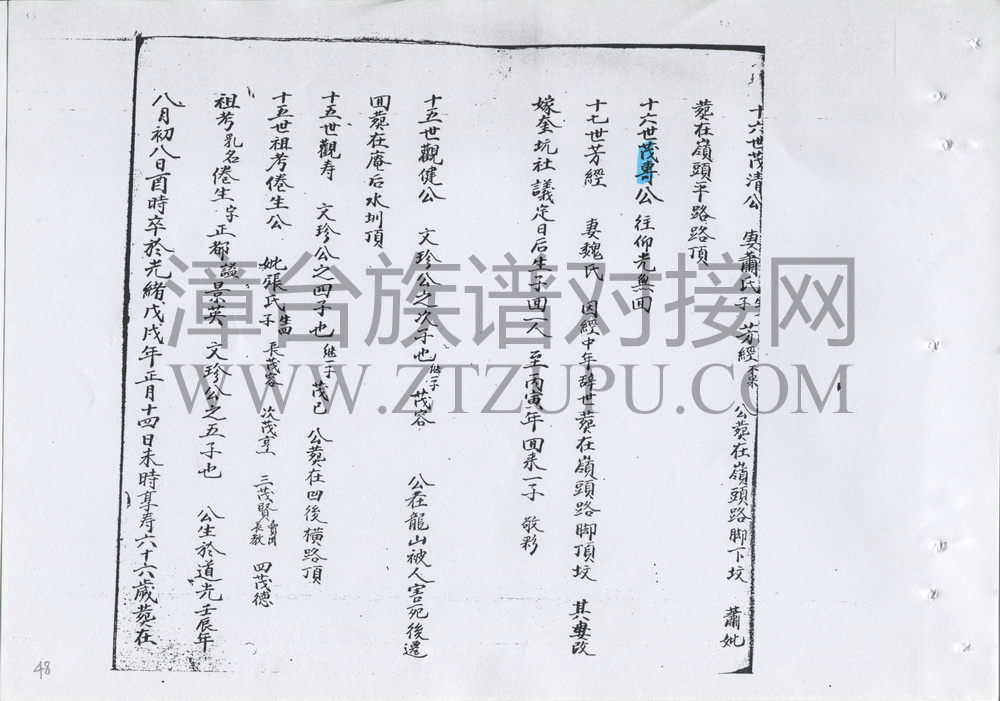 十六世茂清公 妻蕭氏 子芳經 公葬在嶺頭路脚下坟 蕭妣
葬在嶺頭平路路頂
十六世茂專公 往仰光無回
十七世芳經 妻魏氏 因經中年辞世葬在嶺頭路脚頂坟 其妻改
嫁奎坑社 議定日后生子回一人 至丙寅年回來一子 敬彩
十五世觀健公 文珍公之次子也 继一子 茂容 公在龍山被人害死後遷
回葬在庵后水圳頂
十五世觀寿 文珍公之四子也 继一子 茂已 公葬在凹後横路頂
十五世祖考倦生公 妣張氏 生四子 長茂容 次茂烹 三茂賢 四茂德
祖考乳名倦生 字正都 諡景英 文珍公之五子也 公生於道光壬辰年
八月初八日酉時卒於光緒戊戌年正月十四日未時享寿六十六歲葬在
漳台族谱对接网
WWW.ZTZUPU.COM
48